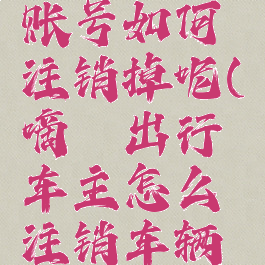 账号如何
注销掉呢(
嘀 出行
车主怎么
注销车辆